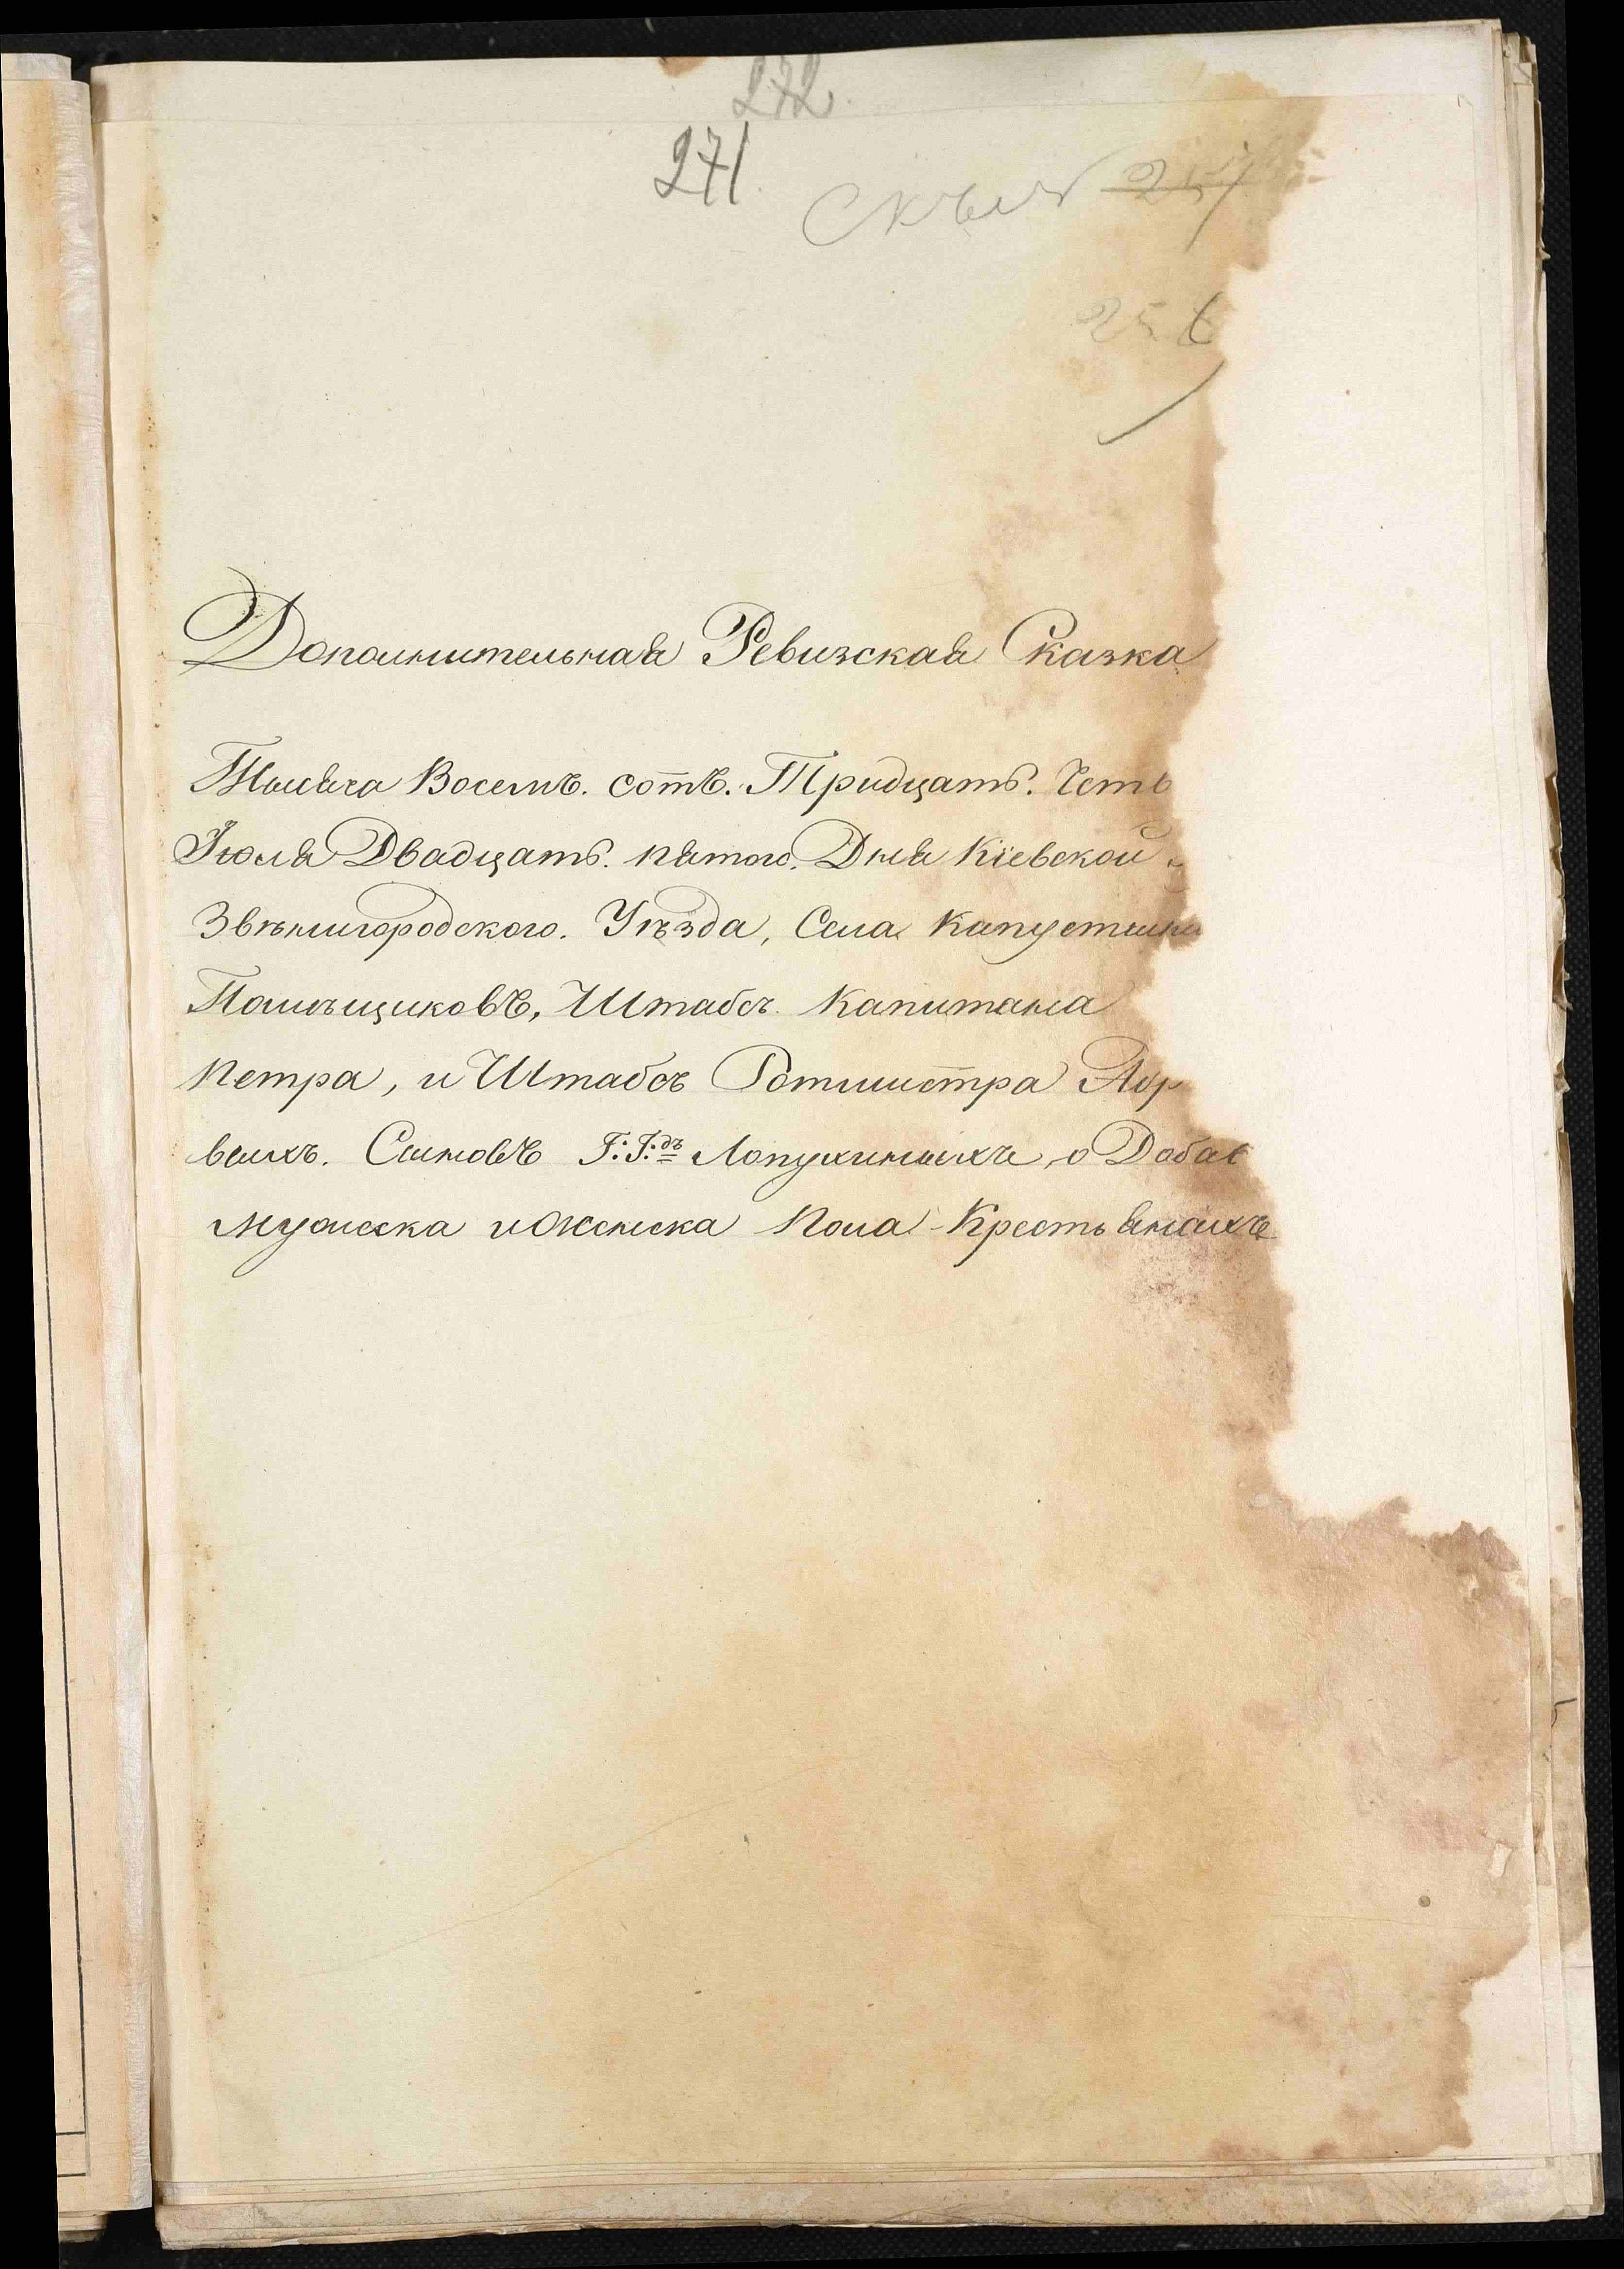 272
271.
257
256
Дополнительная Ревизская Сказка
Тысяча Восемъ. сотъ. Тридцать. Четв
Іюля Двадцать. пятого. Дня Кіевской
Звѣнигородского. Уѣзда, Села Капустина
Помѣщиковъ, Штабсъ. Капитана
Петра, и Штабсъ Ротмистра Абр
выхъ. Сыновъ Г:Г:дъ Лопухиныхъ, о Добав
мужеска и женска Пола Крестьянахъ